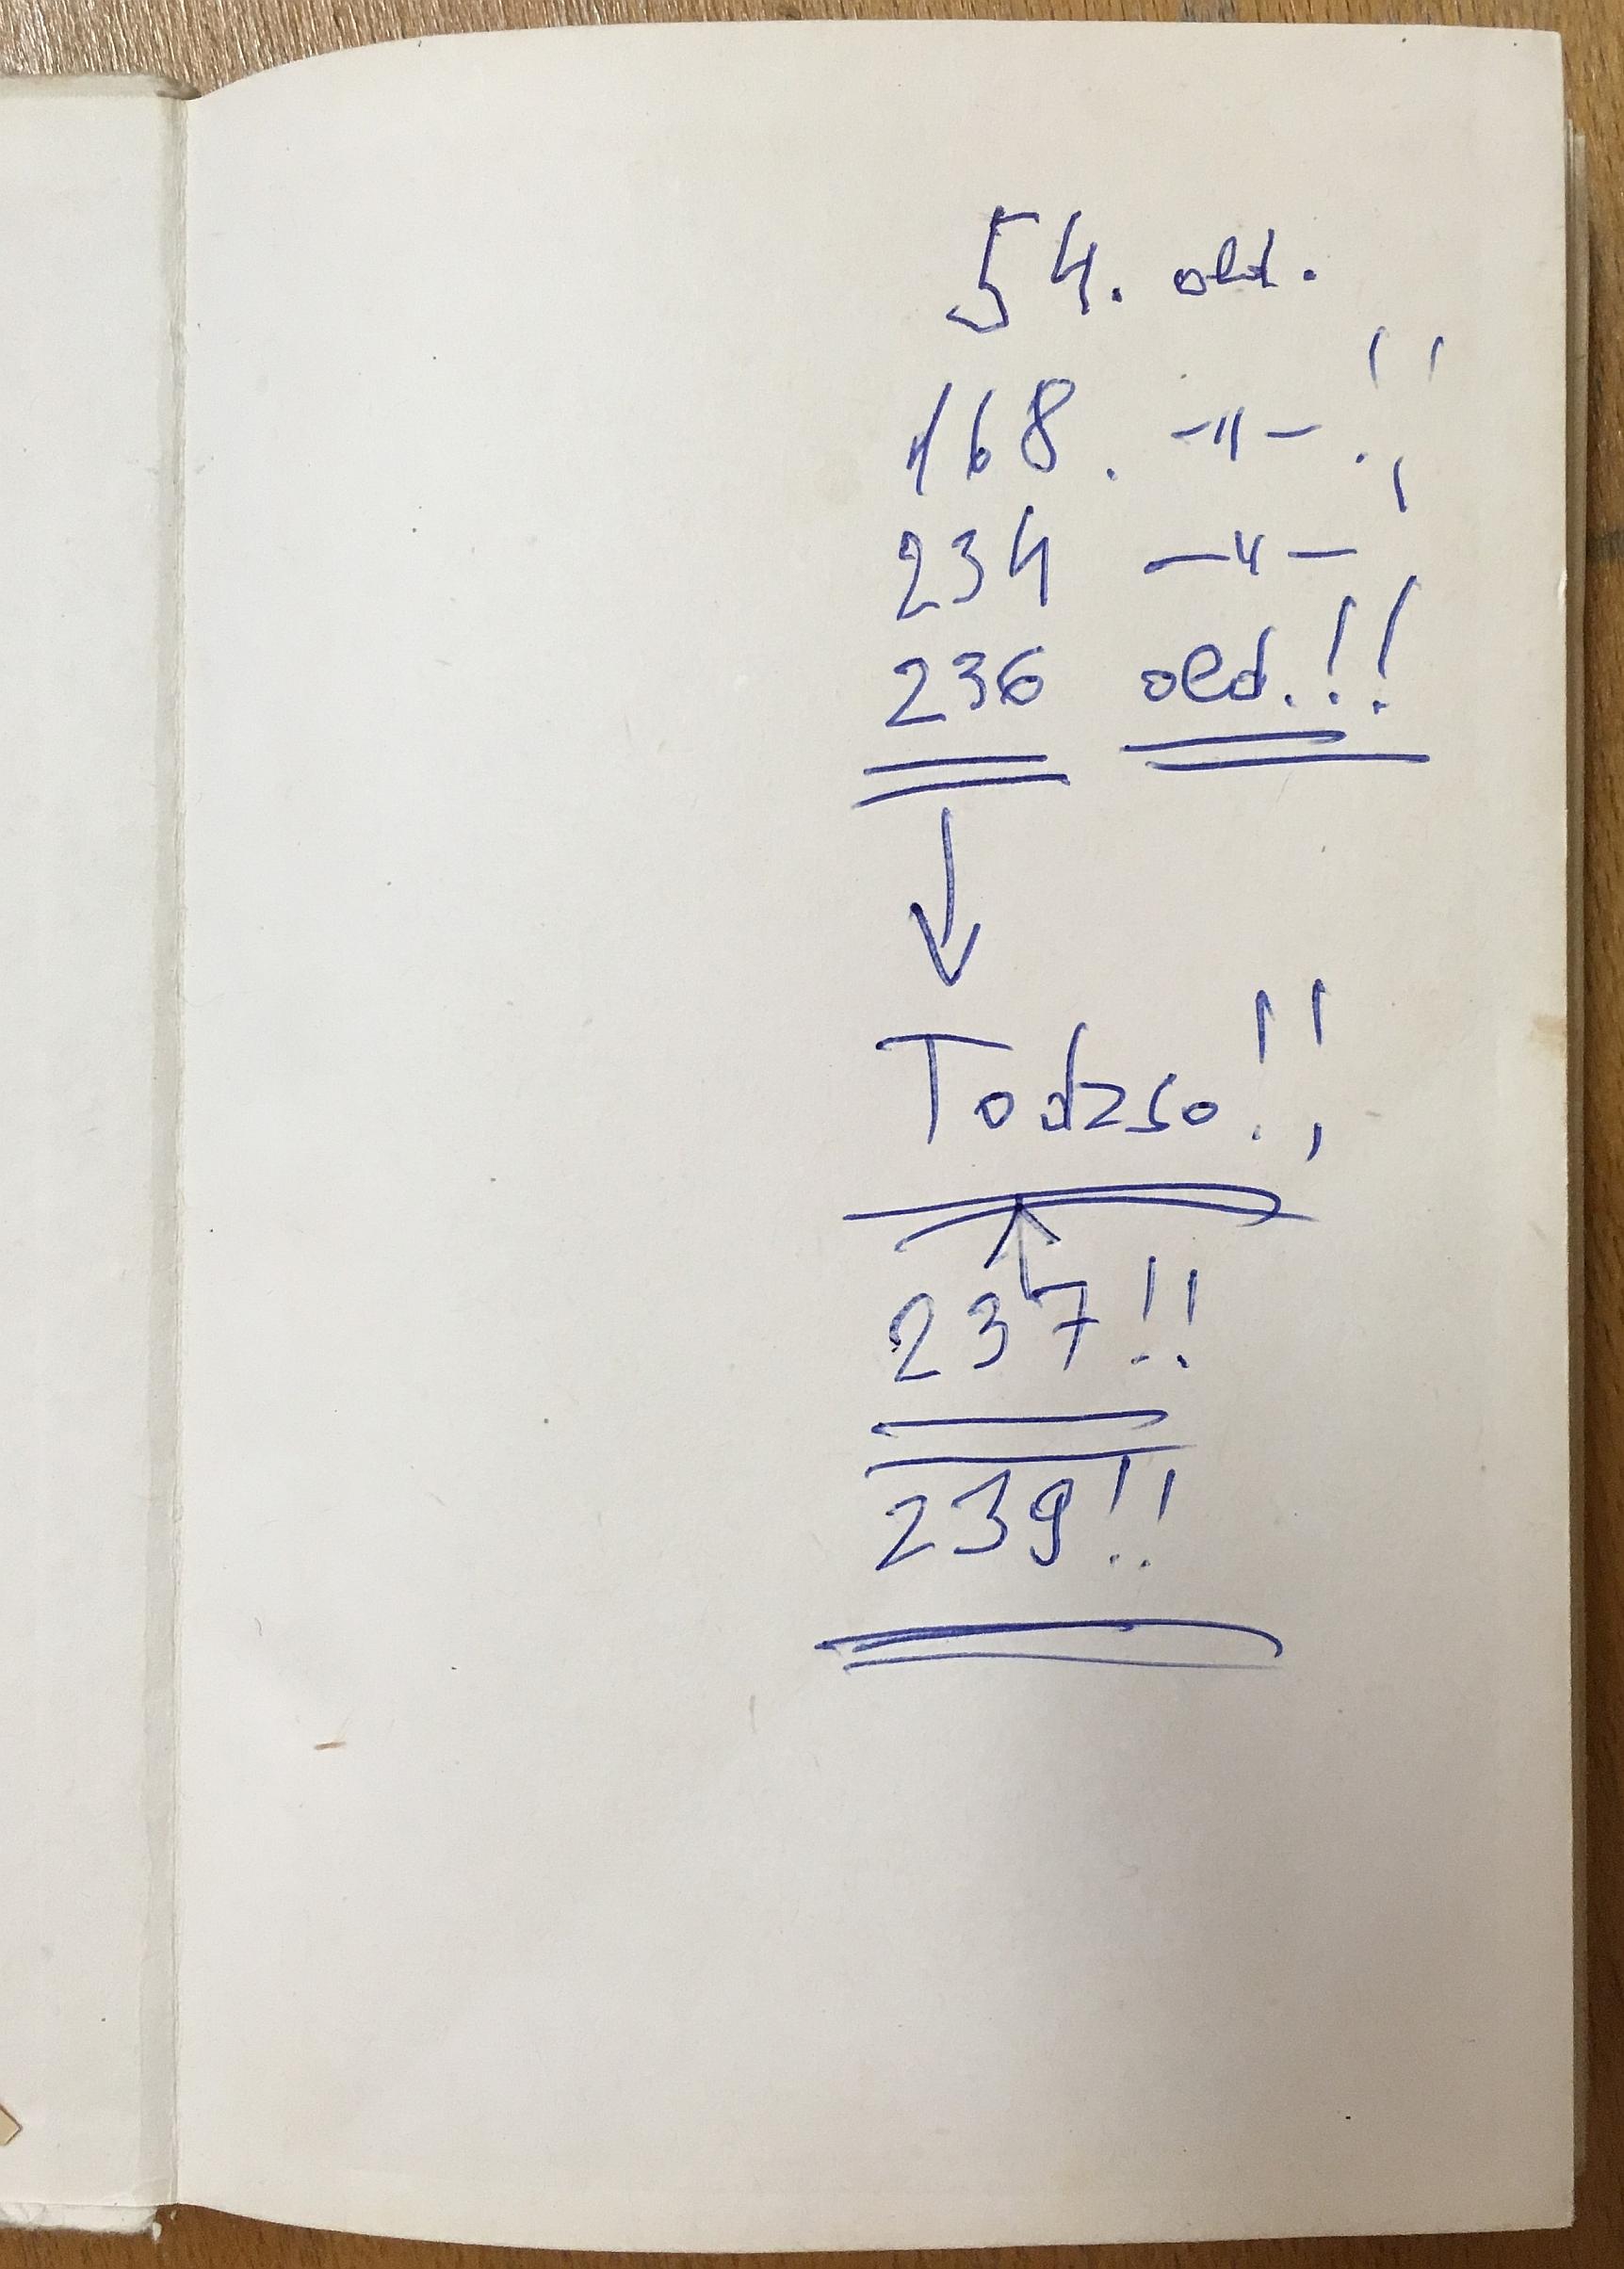 54. old.
168. -"- !!
234 -"-
236 old.!!
Todzso!!
237!!
239!!